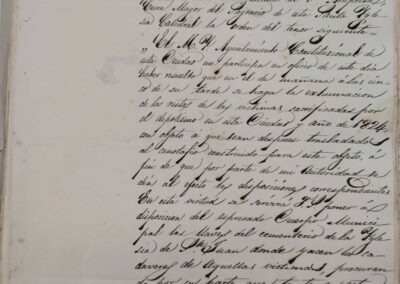 Cura Mayor del Sagrario de esta Santa Ygle
sia Catedral la orden del tenor siguiente
"El M. Y. Ayuntamiento Constitucional de
esta Ciudad me participa en oficio de este dia
haber resuelto que en el de mañana á las cin
co de su tarde se haga la exhumacion
de los restos de las víctimas sacrificadas por
el despotismo en esta Ciudad y año de 1824,
con objeto á que sean despues trasladados
al cenotafio construido para este objeto, á
fin de que por parte de mi Autoridad se
den al efecto las disposiciones correspondientes
En esta virtud se servirá V. poner á
disposicion del espresado Cuerpo Munici
pal las llaves del cementerio de la Ygle
sia de Sn. Juan donde yacen los ca
daveres de aquellas víctimas, procuran
do por su parte que